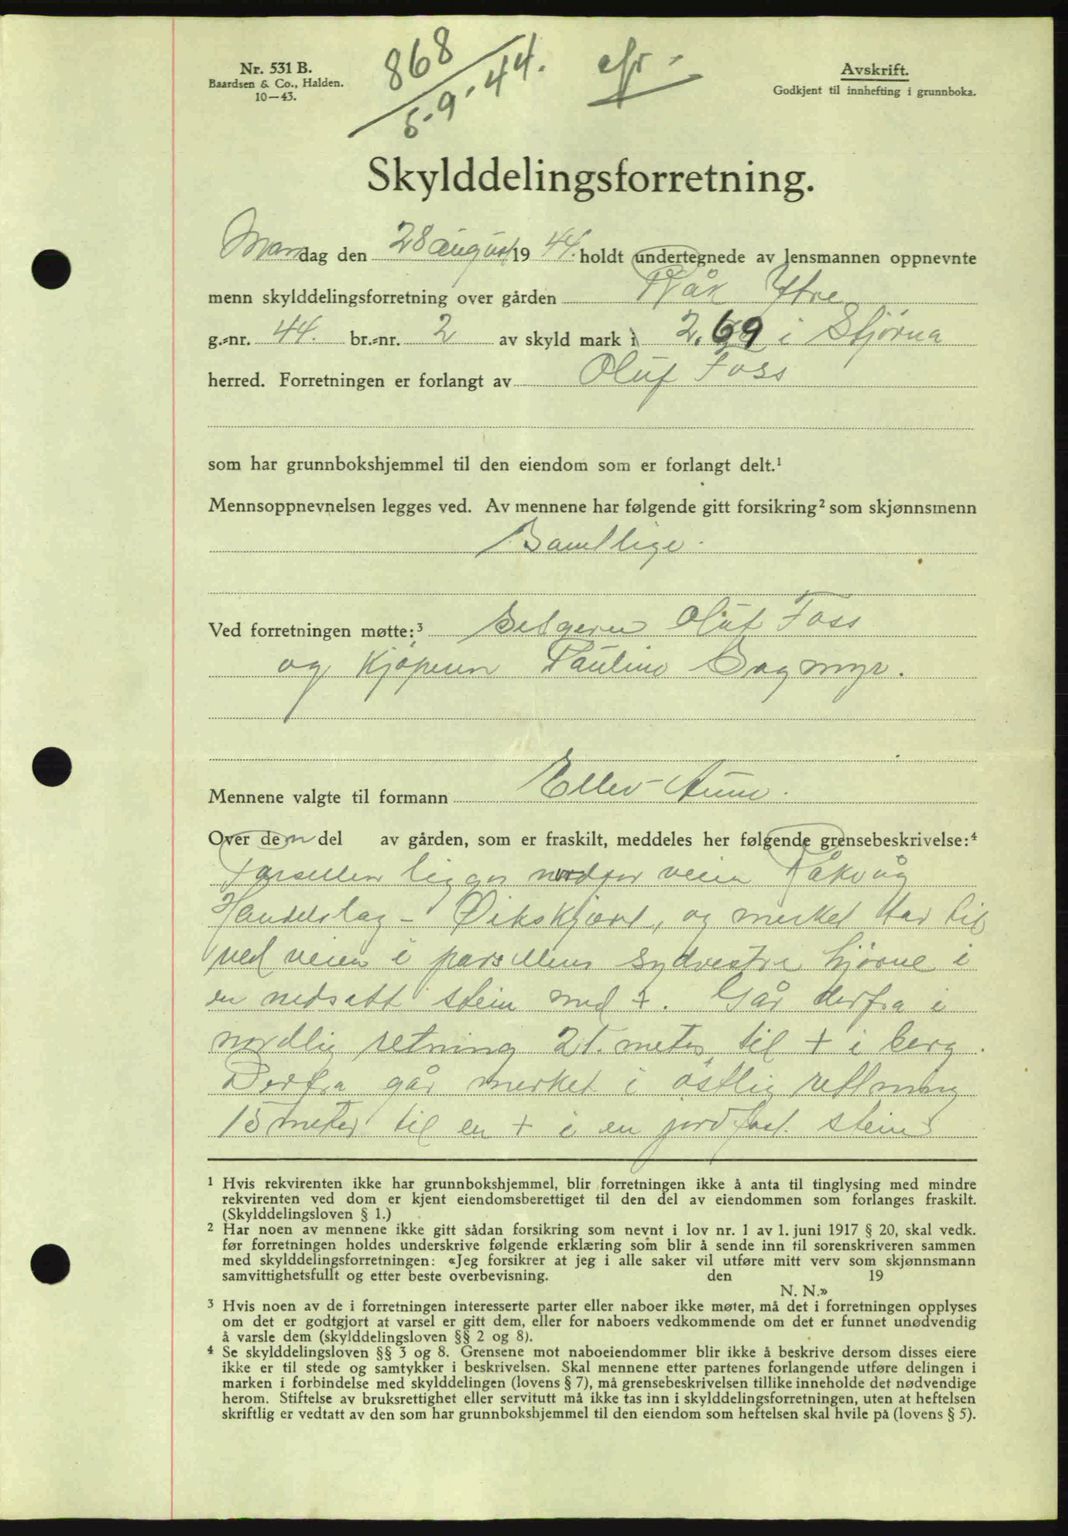 Nr. 531 B.
Baardsen & Co., Halden.
10—43.
868
5-9-44.
Avskrift.
Godkjent til innhefting i grunnboka.
Skylddelingsforretning.
Mandag den 28 august 1944. holdt undertegnede av lensmannen oppnevnte
menn skylddelingsforretning over gården Råk Ytre
g.-nr. 44. br.-nr. 2 av skyld mark 2.69 i Stjørna
herred. Forretningen er forlangt av Oluf Foss
som har grunnbokshjemmel til den eiendom som er forlangt delt.¹
Mennsoppnevnelsen legges ved. Av mennene har følgende gitt forsikring² som skjønnsmenn
Samtlige.
Ved forretningen møtte:³ Selgeren Oluf Foss
og kjøperen Pauline Sagmyr.
Mennene valgte til formann Ellev Aune.
Over den del av gården, som er fraskilt, meddeles her følgende grensebeskrivelse:⁴
Parsellen ligger nordfor veien Råkvåg
Handelslag - Øikskjæret, og merket tar til
ved veien i parsellens sydvestre hjørne i
en nedsatt stein med +. Går derfra i
nordlig retning 21. meter til + i berg.
Derfra går merket i østlig rettning
15 meter til en + i en jordfast stein
1 Hvis rekvirenten ikke har grunnbokshjemmel, blir forretningen ikke å anta til tinglysing med mindre
rekvirenten ved dom er kjent eiendomsberettiget til den del av eiendommen som forlanges fraskilt.
(Skylddelingsloven § 1.)
2 Har noen av mennene ikke gitt sådan forsikring som nevnt i lov nr. 1 av 1. juni 1917 § 20, skal vedk.
før forretningen holdes underskrive følgende erklæring som blir å sende inn til sorenskriveren sammen
med skylddelingsforretningen: «Jeg forsikrer at jeg i alle saker vil utføre mitt verv som skjønnsmann
samvittighetsfullt og etter beste overbevisning. den 19
N. N.»
3 Hvis noen av de i forretningen interesserte parter eller naboer ikke møter, må det i forretningen opplyses
om det er godtgjort at varsel er gitt dem, eller for naboers vedkommende om det er funnet unødvendig
å varsle dem (skylddelingsloven §§ 2 og 8).
4 Se skylddelingsloven §§ 3 og 8. Grensene mot naboeiendommer blir ikke å beskrive dersom disses eiere
ikke er til stede og samtykker i beskrivelsen. Skal mennene etter partenes forlangende utføre delingen i
marken i forbindelse med skylddelingen (lovens § 7), må grensebeskrivelsen tillike inneholde det nødvendige
herom. Stiftelse av bruksrettighet eller servitutt må ikke tas inn i skylddelingsforretningen, uten at heftelsen
skriftlig er vedtatt av den som har grunnbokshjemmel til den eiendom som heftelsen skal hvile på (lovens § 5).